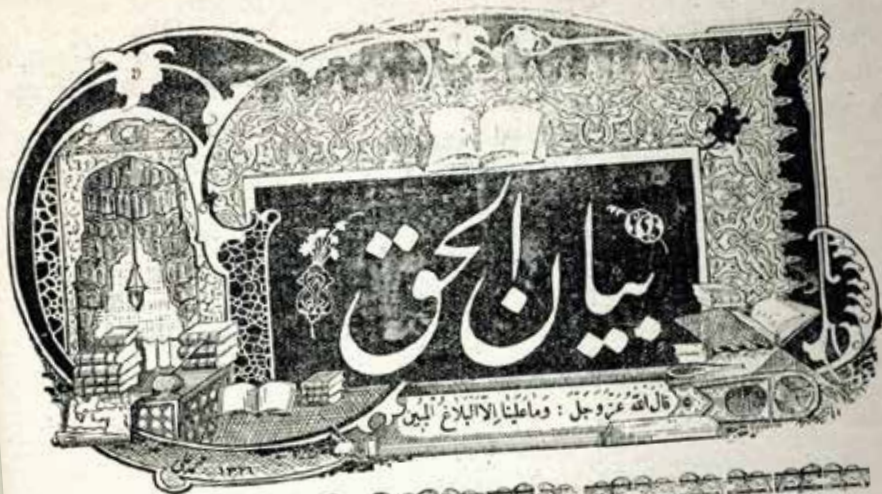 بيان الحق
قال الله عز وجل : وما علينا إلا البلاغ المبين
١٣٢٦